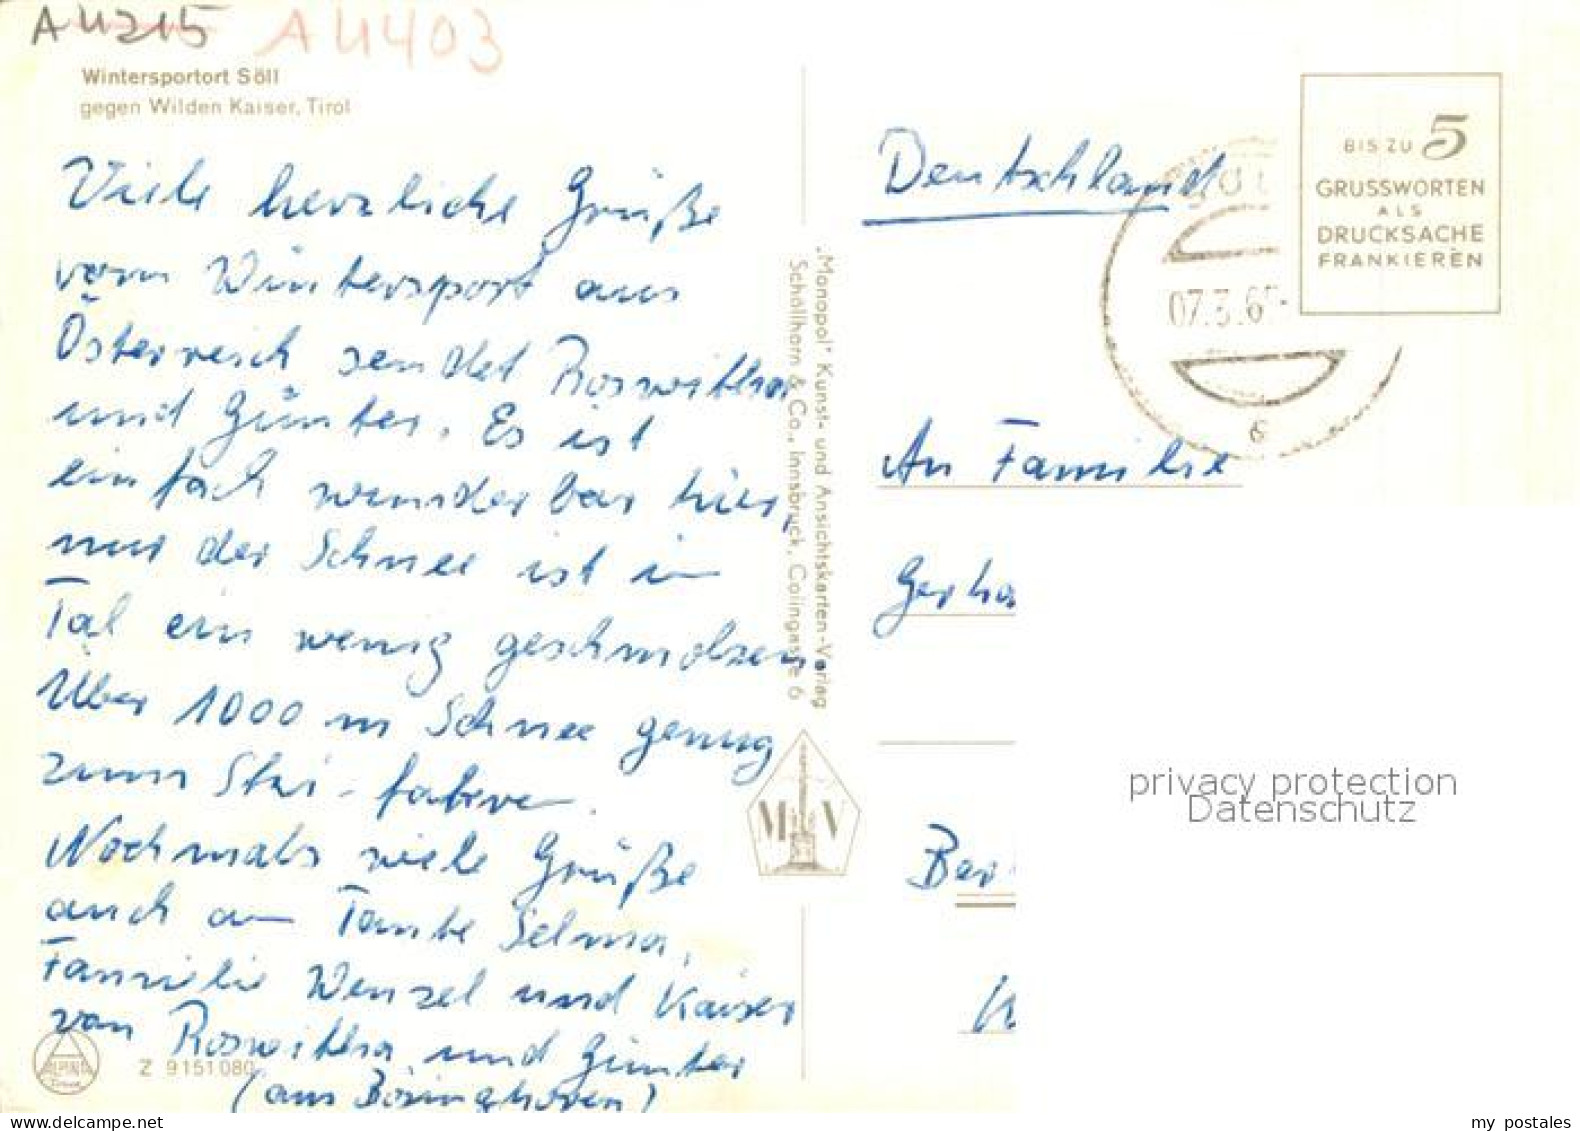 A 4215 A 4403
Wintersportort Söll
gegen Wilden Kaiser, Tirol
Viele herzliche Grüße
vom Wintersport aus
Österreich sendet Roswitha
und Günter. Es ist
einfach wunderbar hier,
nur der Schnee ist im
Tal ein wenig geschmolzen.
Über 1000 m Schnee genug
zum Ski-fahren.
Nochmals viele Grüße
auch an Tante Selma,
Familie Wenzel und Kaiser
von Roswitha und Günter
(aus Bösinghoven)
ALPINA
Z 9151080
"Monopol" Kunst- und Ansichtskarten-Verlag
Schöllhorn & Co., Innsbruck, Colingasse 6
M V
Deutschland
07.3.6
BIS ZU 5
GRUSSWORTEN
ALS
DRUCKSACHE
FRANKIEREN
An Familie
Gerha
Ber
privacy protection
Datenschutz
my postales